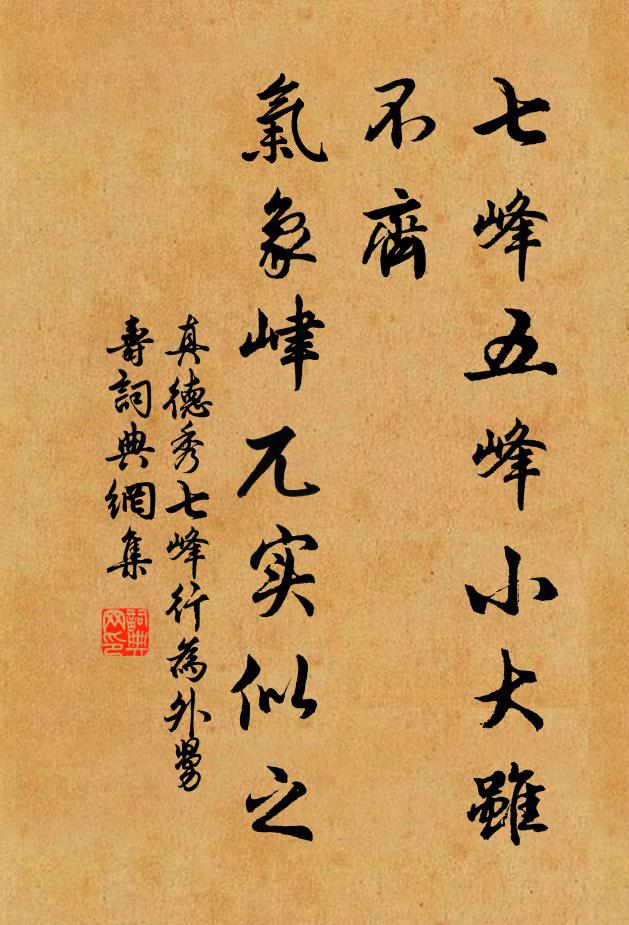 七峰五峰小大雖
不齊
氣象峍兀实似之
真德秀七峰行為外舅
壽詞典網集
詞典
网印